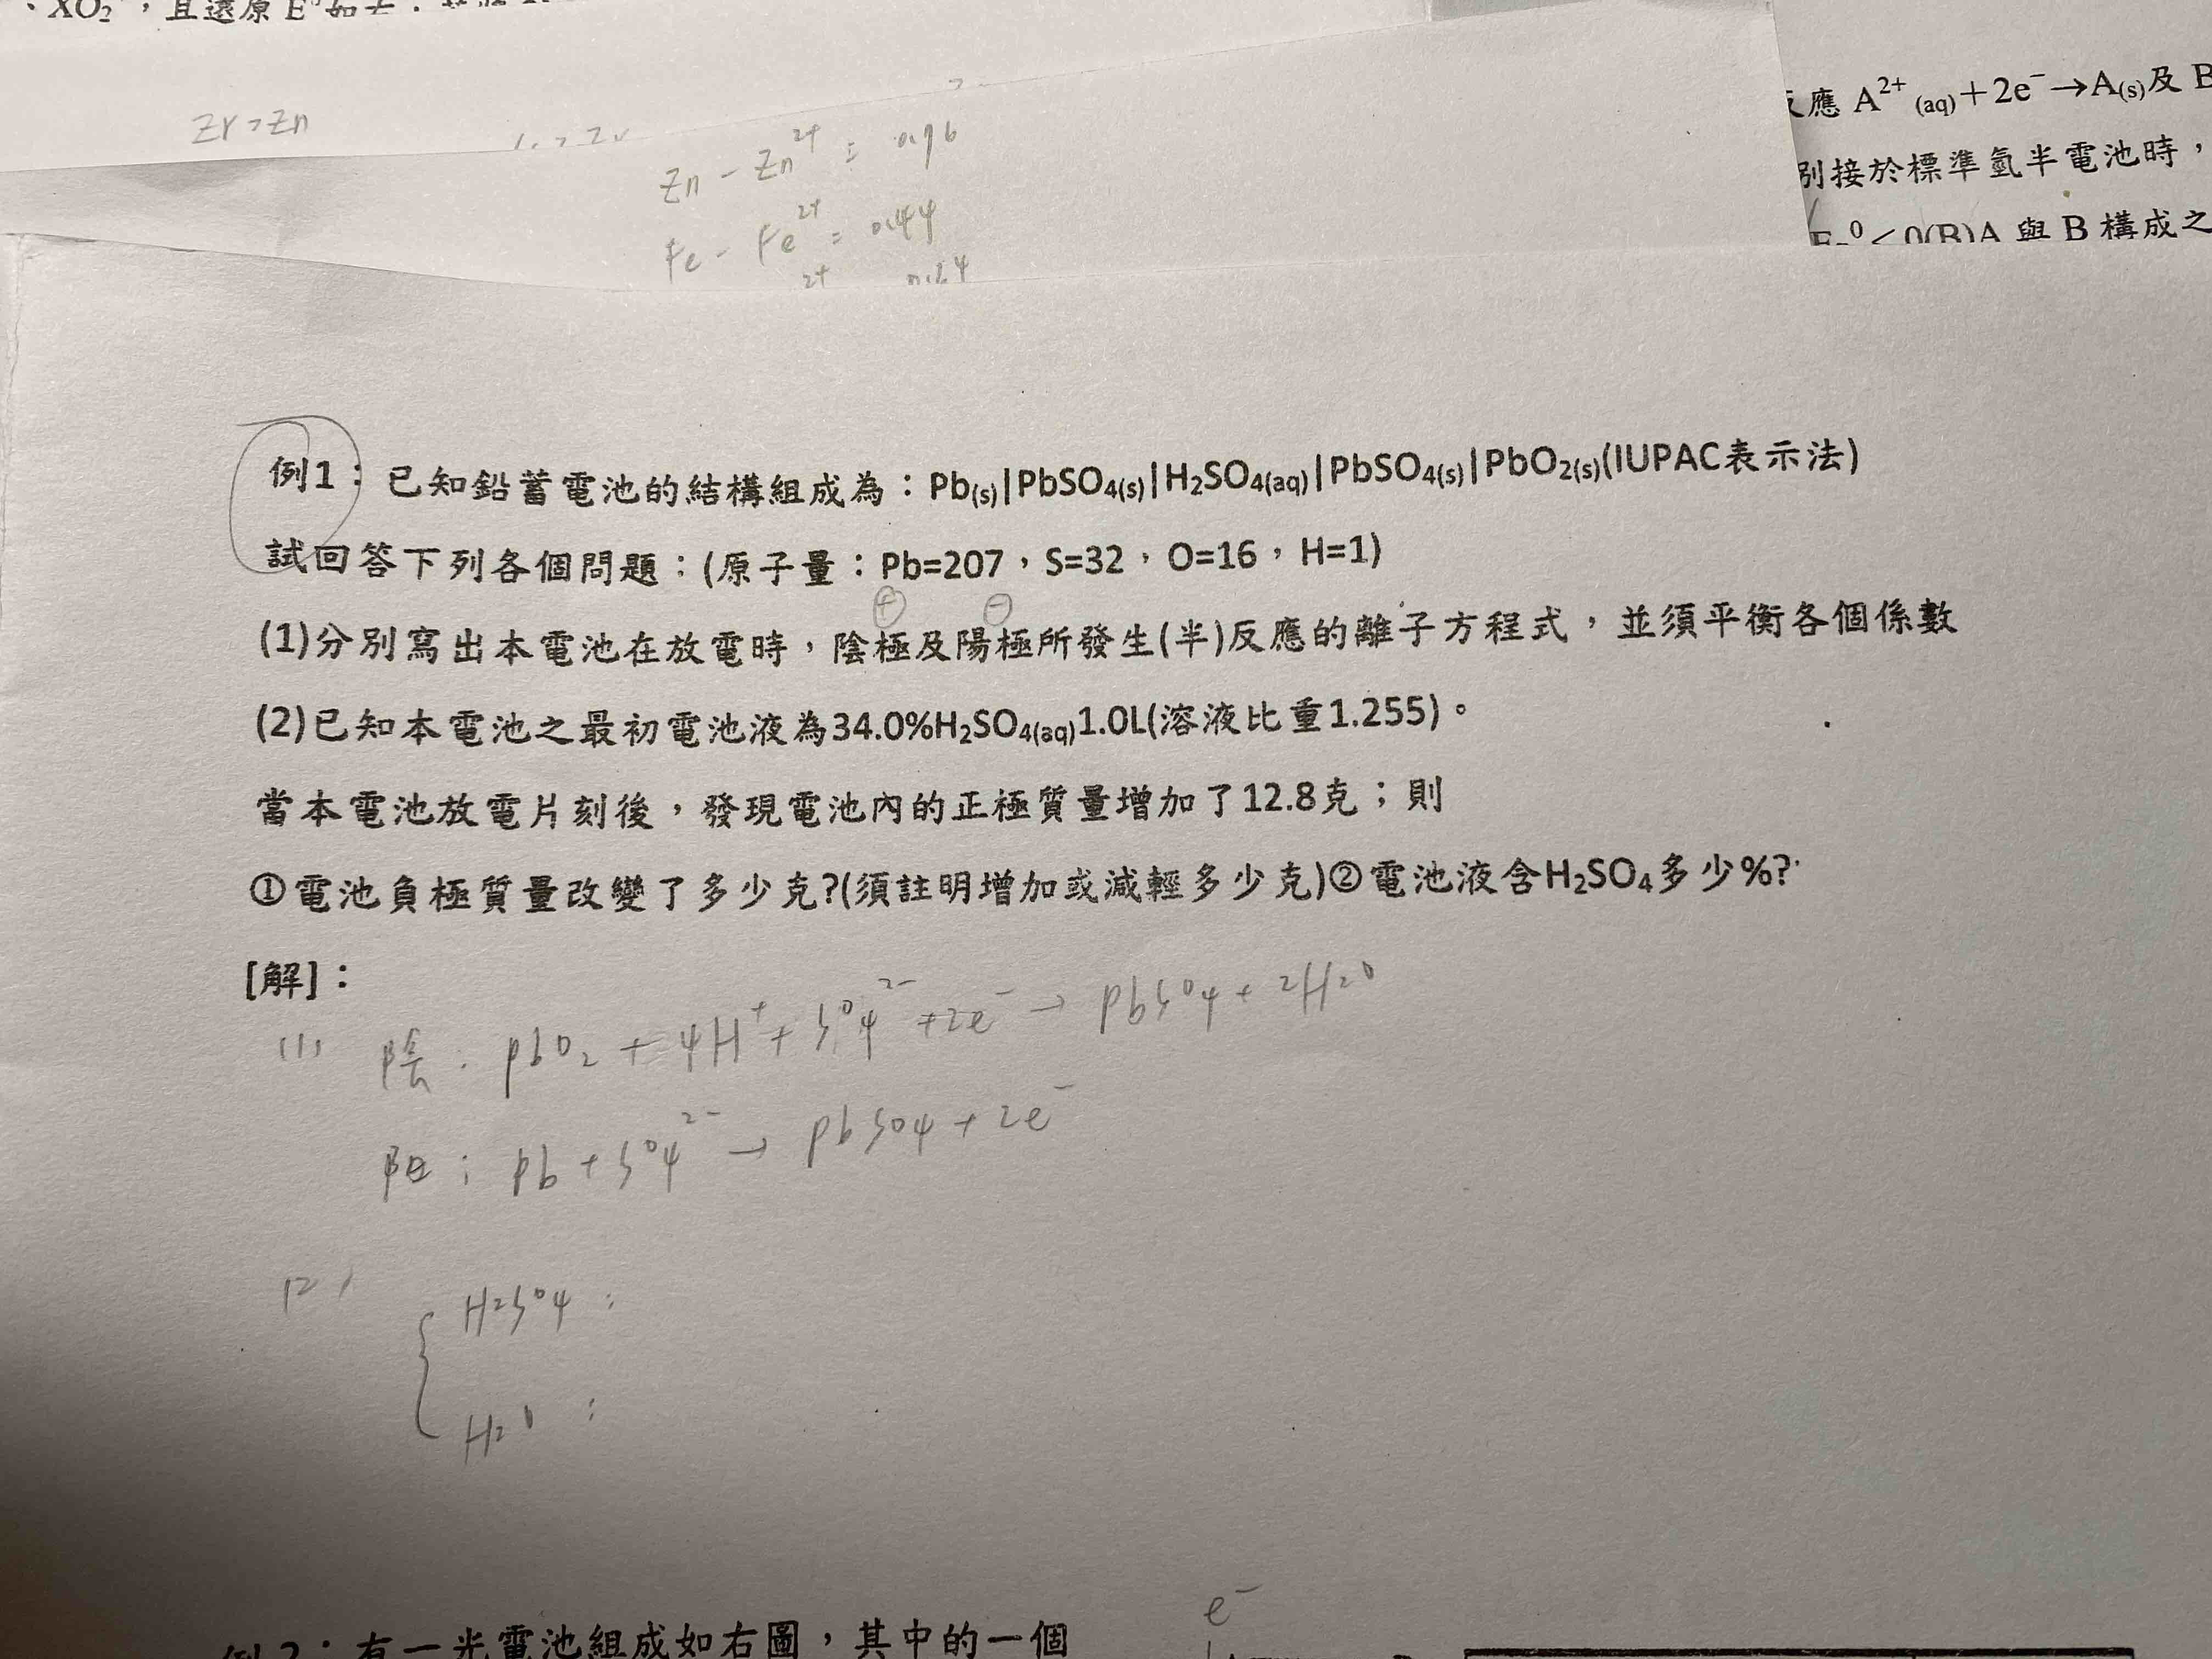 XO₂ ，且還原 E⁰如
Zr>Zn
Zn - Zn²⁺ = 0.76
Fe - Fe²⁺ = 0.44
2+
反應 A²⁺(aq)+2e⁻→A(s)及 B
別接於標準氫半電池時，
⁰<0(B)A 與 B 構成之
例1：已知鉛蓄電池的結構組成為：Pb(s)|PbSO₄(s)|H₂SO₄(aq)|PbSO₄(s)|PbO₂(s)(IUPAC表示法)
試回答下列各個問題：(原子量：Pb=207，S=32，O=16，H=1)
⊕ ⊖
(1)分別寫出本電池在放電時，陰極及陽極所發生(半)反應的離子方程式，並須平衡各個係數
(2)已知本電池之最初電池液為34.0%H₂SO₄(aq)1.0L(溶液比重1.255)。
當本電池放電片刻後，發現電池內的正極質量增加了12.8克；則
①電池負極質量改變了多少克?(須註明增加或減輕多少克)②電池液含H₂SO₄多少%?
[解]：
(1) 陰：PbO₂ + 4H⁺ + SO₄²⁻ + 2e⁻ → PbSO₄ + 2H₂O
陽：Pb + SO₄²⁻ → PbSO₄ + 2e⁻
(2) { H₂SO₄：
H₂O：
e⁻
例2：有一光電池組成如右圖，其中的一個